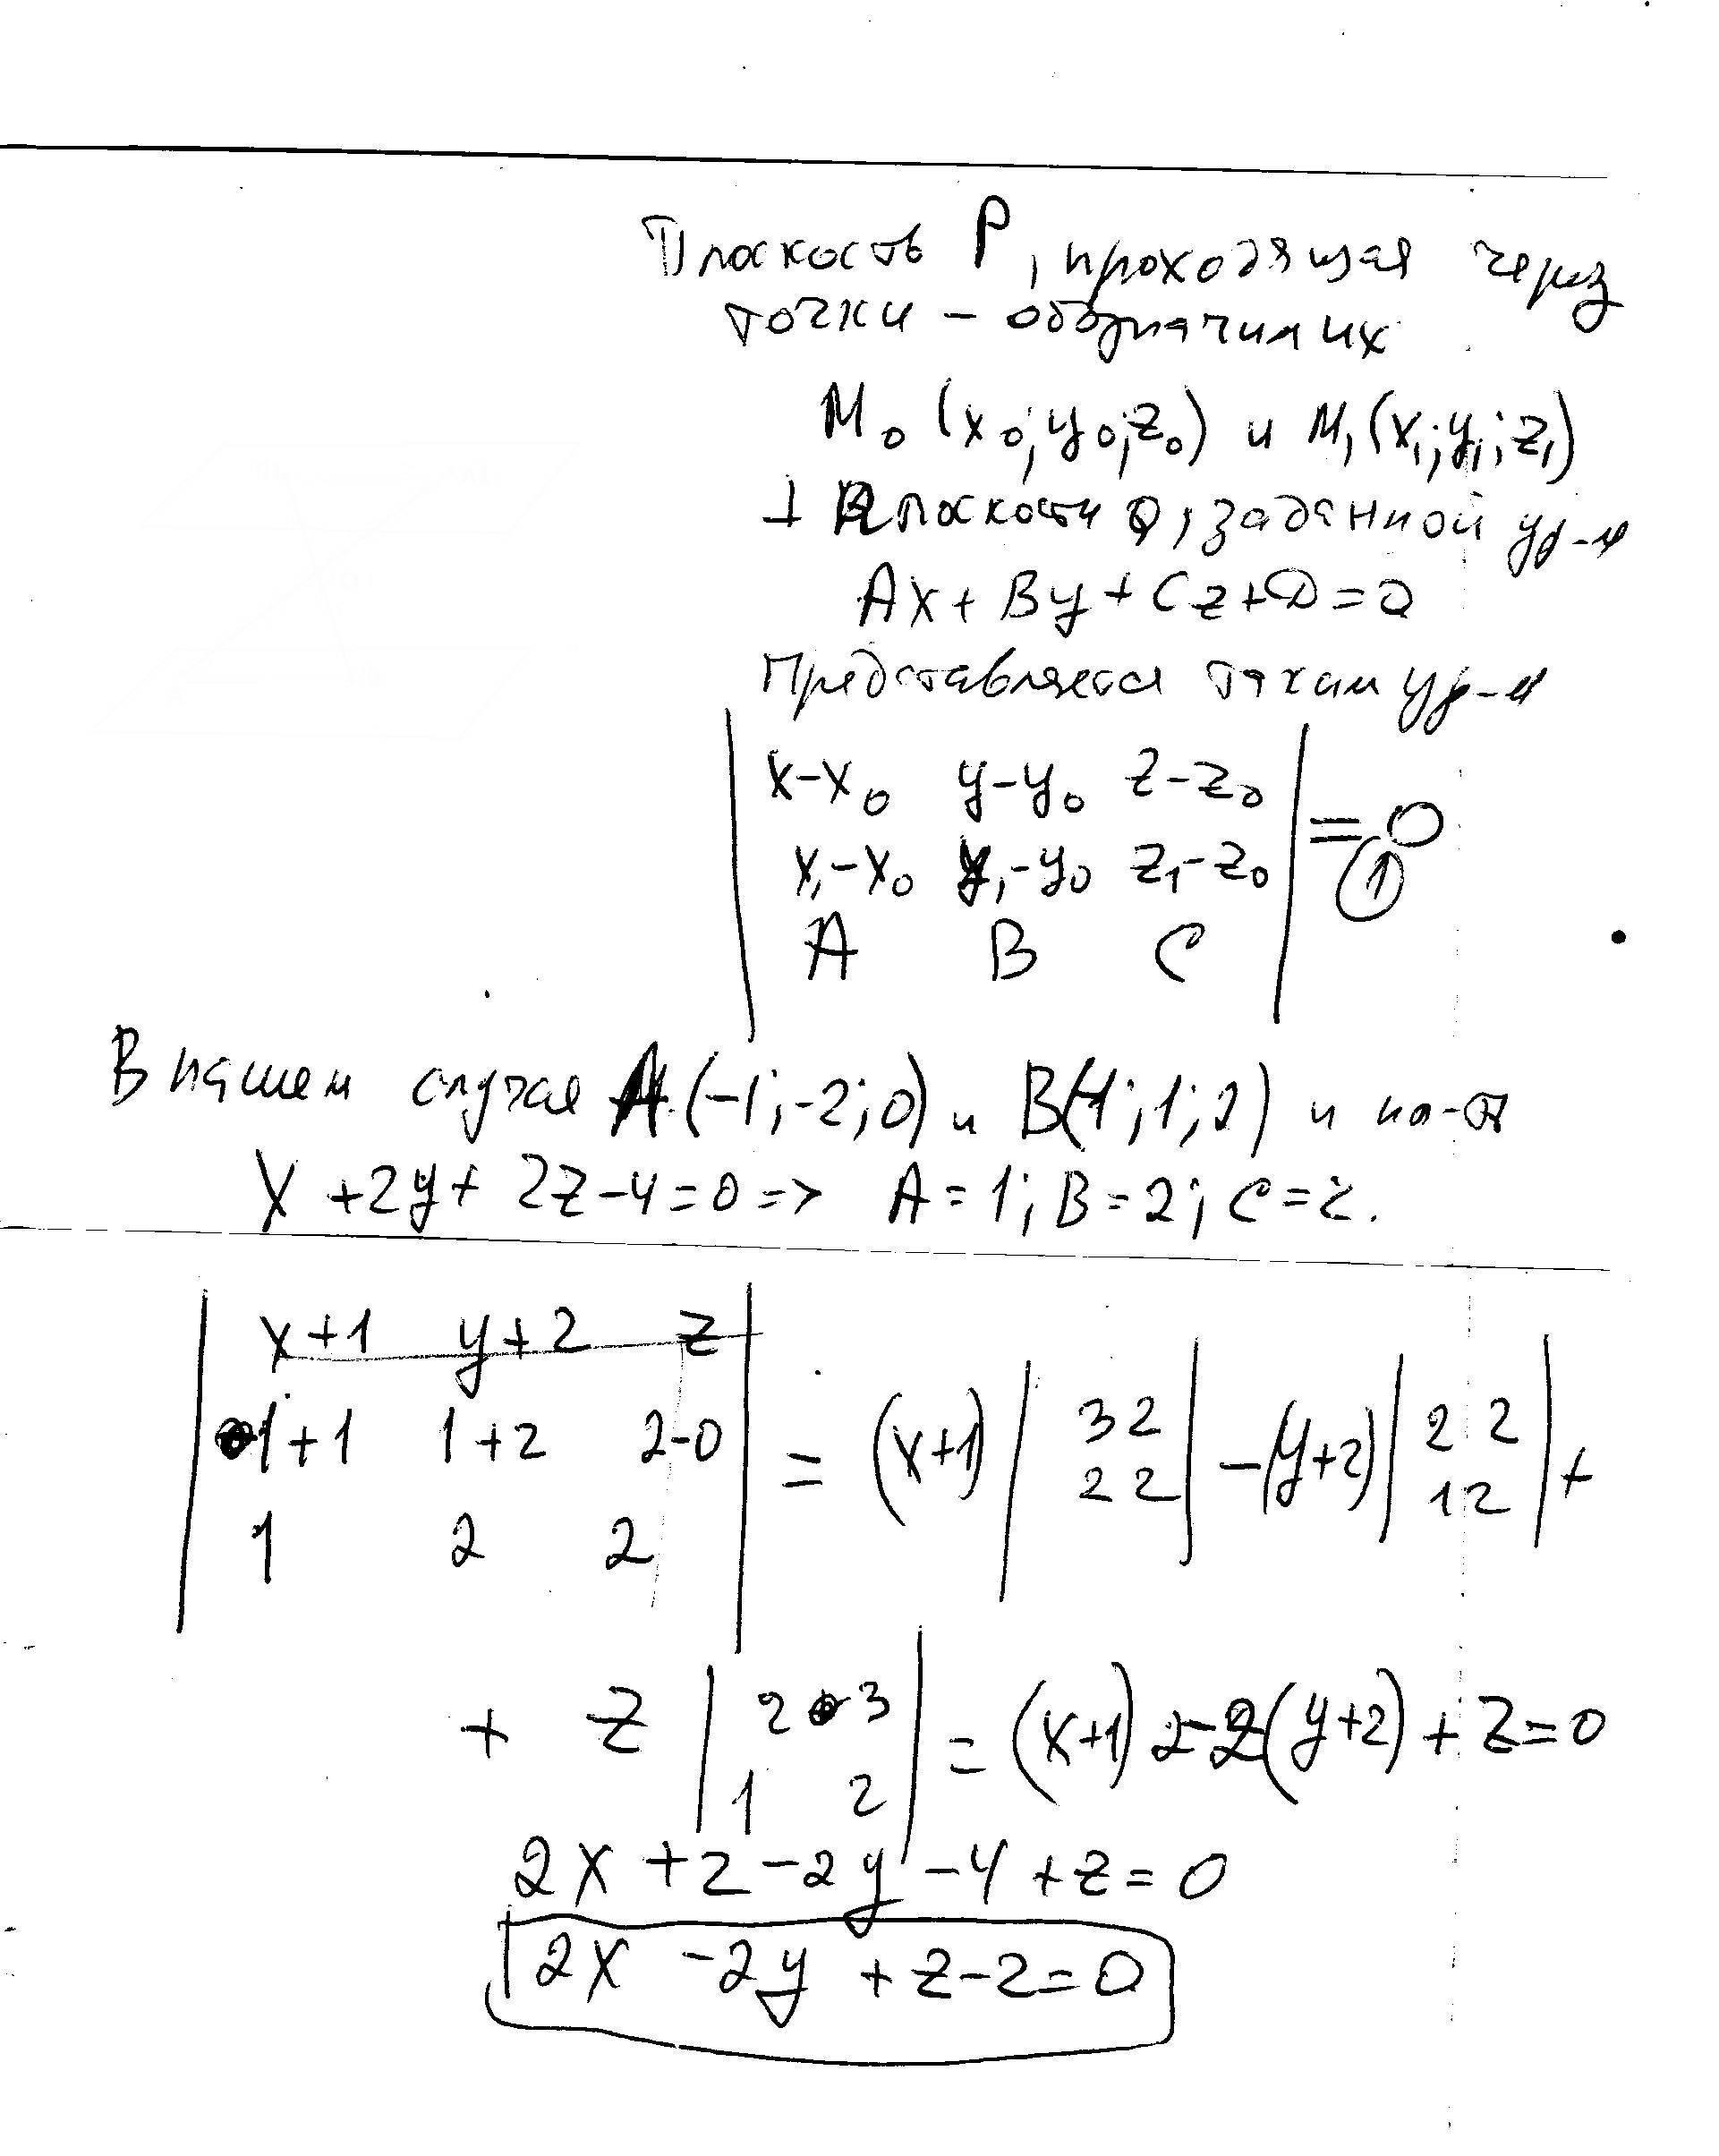 Плоскость P, проходящая через
точки – обозначим их
M₀ (x₀; y₀; z₀) и M₁ (x₁; y₁; z₁)
⊥ плоскости Q, заданной ур-м
Ax + By + Cz + D = 0
Представляется таким ур-м
x-x₀ y-y₀ z-z₀
x₁-x₀ y₁-y₀ z₁-z₀ = 0 (1)
A B C
В нашем случае A (-1; -2; 0) и B(1; 1; 2) и пл-ть
x + 2y + 2z - 4 = 0 => A = 1; B = 2; C = 2.
| x+1 y+2 z |
| 1+1 1+2 2-0 | = (x+1) | 3 2 | - (y+2) | 2 2 | +
| 1 2 2 | | 2 2 | | 1 2 |
+ z | 2 3 | = (x+1) 2 - 2(y+2) + z = 0
| 1 2 |
2x + 2 - 2y - 4 + z = 0
2x - 2y + z - 2 = 0